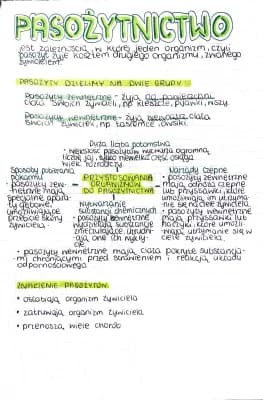 PASOŻYTNICTWO
jest zależnością, w której jeden organizm, czyli
pasożyt żyje kosztem drugiego organizmu, zwanego
żywicielem.
PASOŻYTY DZIELIMY NA DWIE GRUPY
Pasożyty zewnętrzne - żyją na powierzchni
ciała swoich żywicieli, np kleszcze, pijawki, wszy
Pasożyty wewnętrzne - żyją wewnątrz ciała
swoich żywicieli, np. tasiemce, owsiki.
Duża liczba potomstwa
• większość pasożytów wytwarza ogromną
liczbę jaj, tylko niewielka część osiąga
wiek rozrodczy.
Sposoby pobierania
pokarmu
• pasożyty zew-
nętrzne mają
specjalne apara-
ty gębowe,
umożliwiające
przebicie skóry
żywiciela.
PRZYSTOSOWANIA
ORGANIZMÓW
DO PASOŻYTNICTWA
Wytwarzanie
substancji chemicznych
• pasożyty zewnętrzne
wydzielają substancje
znieczulające, utrudni-
ają one ich wykry-
cie.
Narządy czepne
• pasożyty zewnętrzne
mają odnóża czepne
lub przyssawki, które
umożliwiają im utrzyma-
nie się na ciele żywiciela.
• pasożyty wewnętrzne
mają przyssawki lub
haczyki, które umożli-
wiają utrzymanie się w
ciele żywiciela.
• pasożyty wewnętrzne mają ciała pokryte substancja-
mi chroniącymi przed strawieniem i reakcją układu
odpornościowego.
ZNACZENIE PASOŻYTÓW
• osłabiają organizm żywiciela
• zatruwają organizm żywiciela
• przenoszą wiele chorób